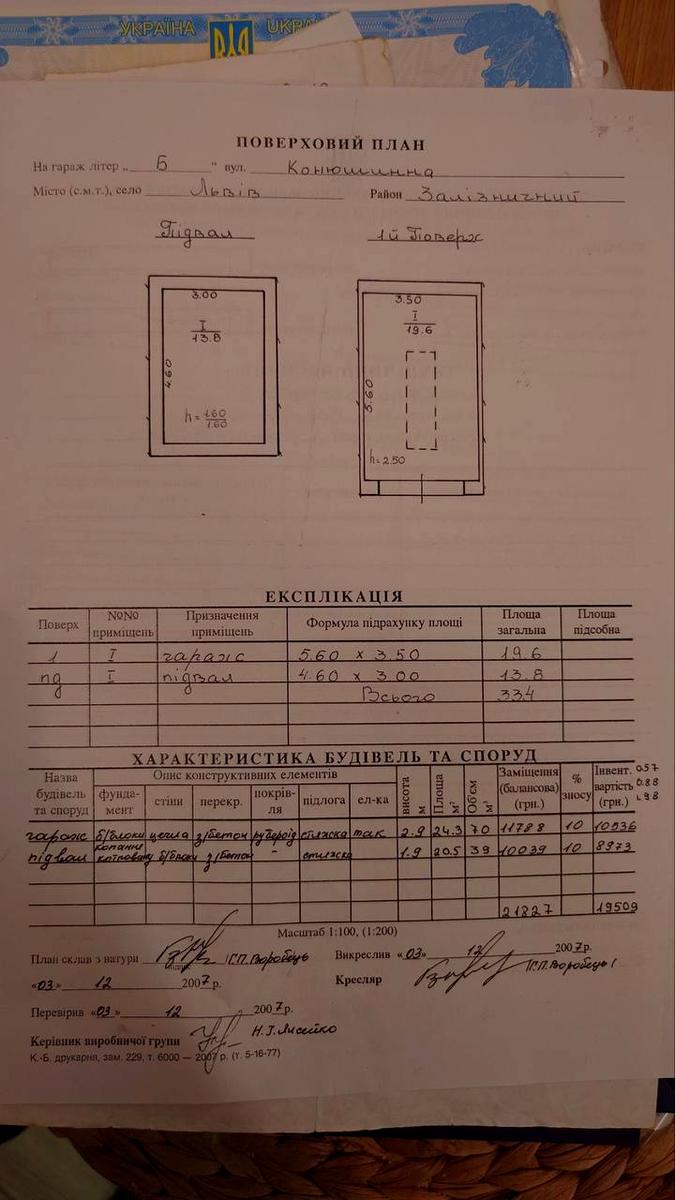 УКРАЇНА
UKRA
ПОВЕРХОВИЙ ПЛАН
На гараж літер „ Б “ вул. Конюшинна
Місто (с.м.т.), село Львів Район Залізничний
Підвал 1й Поверх
3.00
I
13.8
4.60
h = 1.60
1.60
3.50
I
19.6
5.60
h = 2.50
ЕКСПЛІКАЦІЯ
Поверх №№ приміщень Призначення приміщень Формула підрахунку площі Площа загальна Площа підсобна
1 I гараж 5.60 x 3.50 19.6
пд I підвал 4.60 x 3.00 13.8
Всього 33.4
ХАРАКТЕРИСТИКА БУДІВЕЛЬ ТА СПОРУД
Назва будівель та споруд Опис конструктивних елементів висота м Площа м² Об'єм м³ Заміщення (балансова) (грн.) % зносу Інвент. вартість (грн.)
фунда-мент стіни перекр. покрів-ля підлога ел-ка
0.57
0.88
1.98
гараж б/блоки цегла з/бетон рубероїд стяжка так 2.9 24.3 70 11788 10 10536
підвал копання котловану б/блоки з/бетон - стяжка 1.9 20.5 39 10039 10 8973
21827 19509
Масштаб 1:100, (1:200)
План склав з натури /Г.П.Воробець Викреслив «03» 12 2007р.
«03» 12 2007р. Кресляр /Г.П.Воробець/
Перевірив «03» 12 2007р.
Керівник виробничої групи Н.І.
К.-Б. друкарня, зам. 229, т. 6000 — 2007 р. (т. 5-16-77)